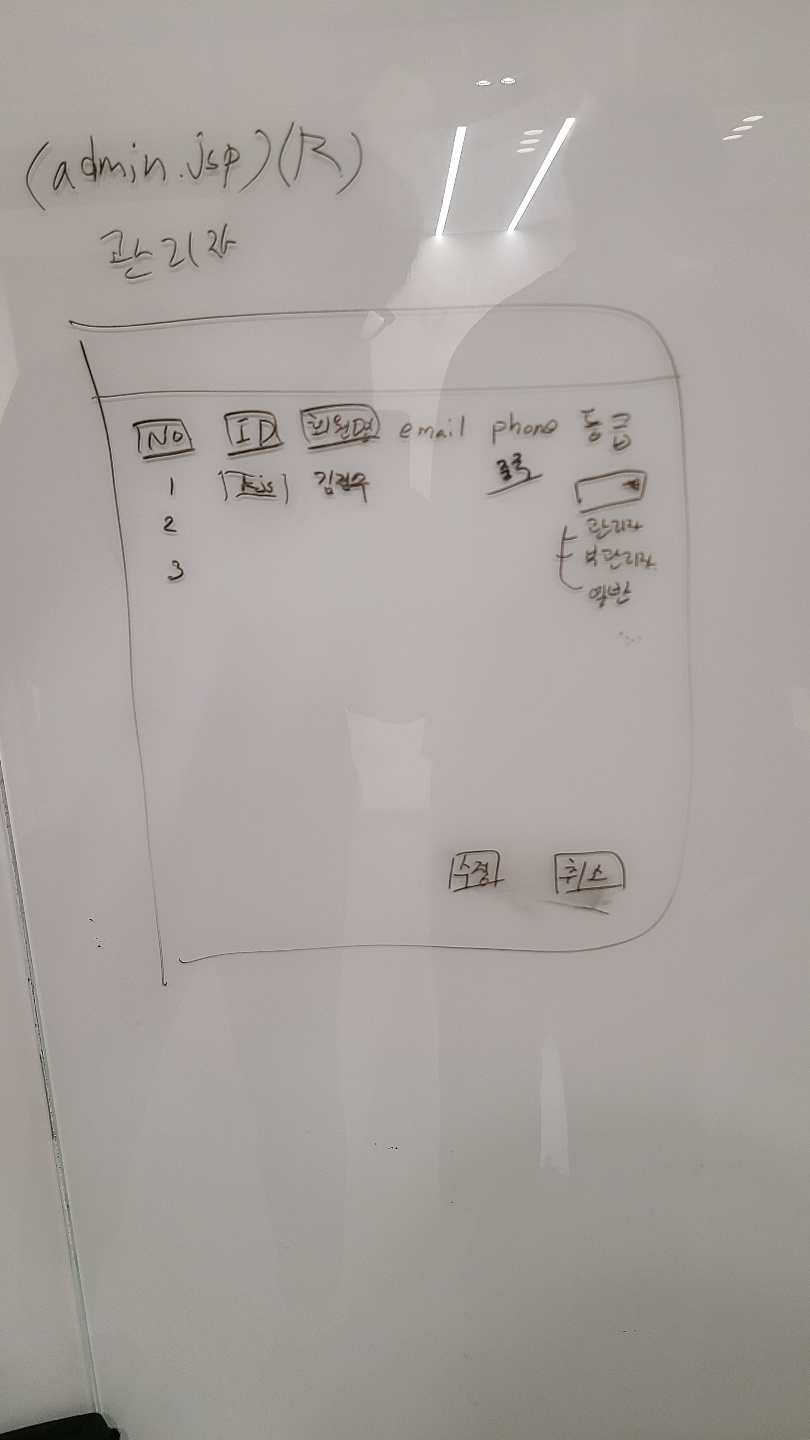 (admin.jsp)(R)
관리자
No ID 회원명 email phone 등급
1 kjs
2
3
관리자
부관리자
일반
수정 취소